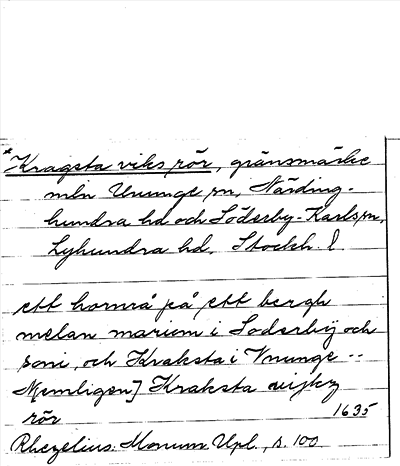 *Kragsta viks rör, gränsmärke
mln Ununge sn, Närding-
hundra hd och Söderby-Karls sn,
Lyhundra hd, Stockh. l
ett hornrå på ett bergh
melan marium i Soderbÿ och
soni, och Kraksta i Vnunge --
N[emligen] Kraksta wijkz
rör 1635
Rhezelius: Monum Upl., s. 100